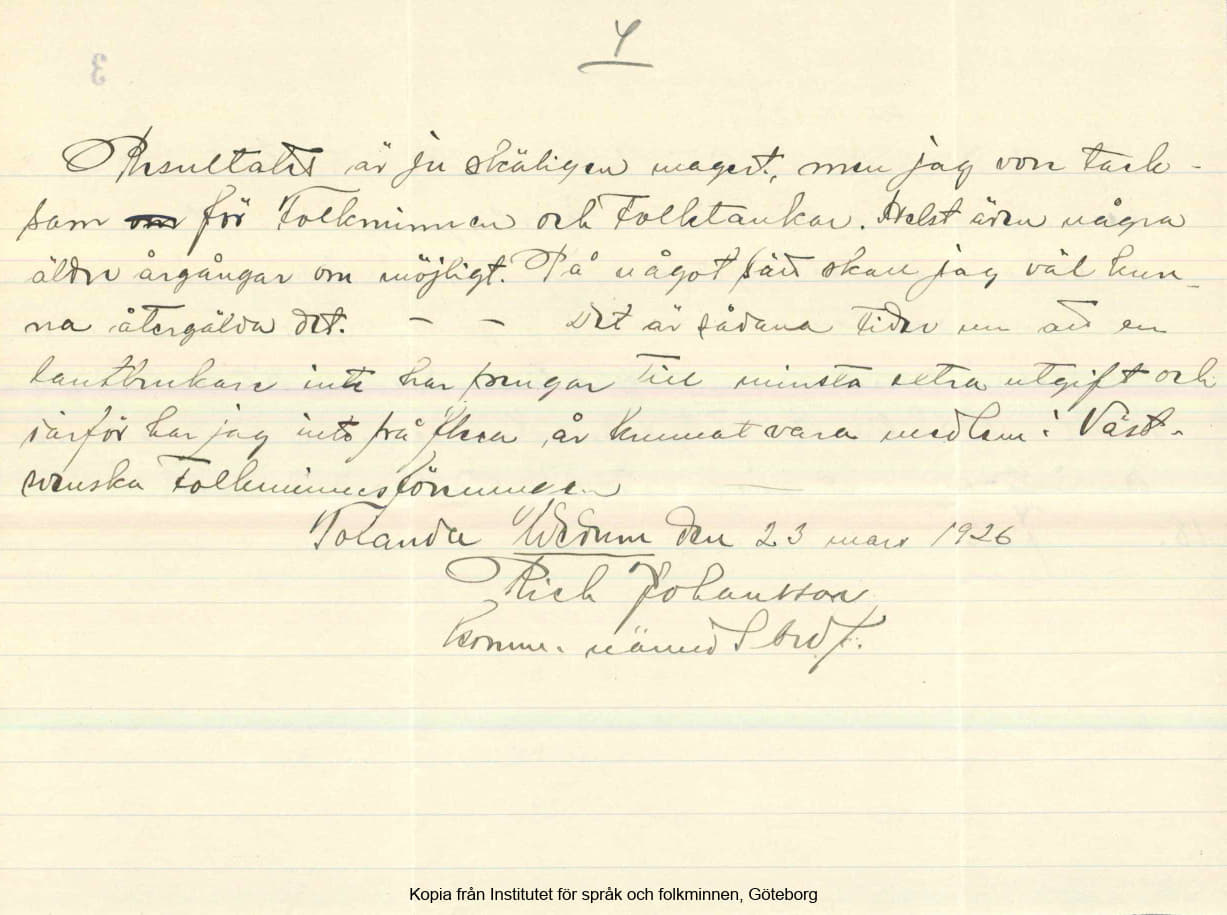 4
3
Resultatet är ju skäligen magert, men jag vore tack-
sam om för Folkminnen och Folktankar. Helst även några
äldre årgångar om möjligt. På något sätt skall jag väl kun-
na återgälda det. — — Det är sådana tider nu att en
lantbrukare inte har pengar till minsta extra utgift och
därför har jag inte på flera år kunnat vara medlem i Väst-
svenska Folkminnesföreningen —
Tolanda Wedum den 23 mars 1926
Rich Johansson
Komm. nämnd
Kopia från Institutet för språk och folkminnen, Göteborg